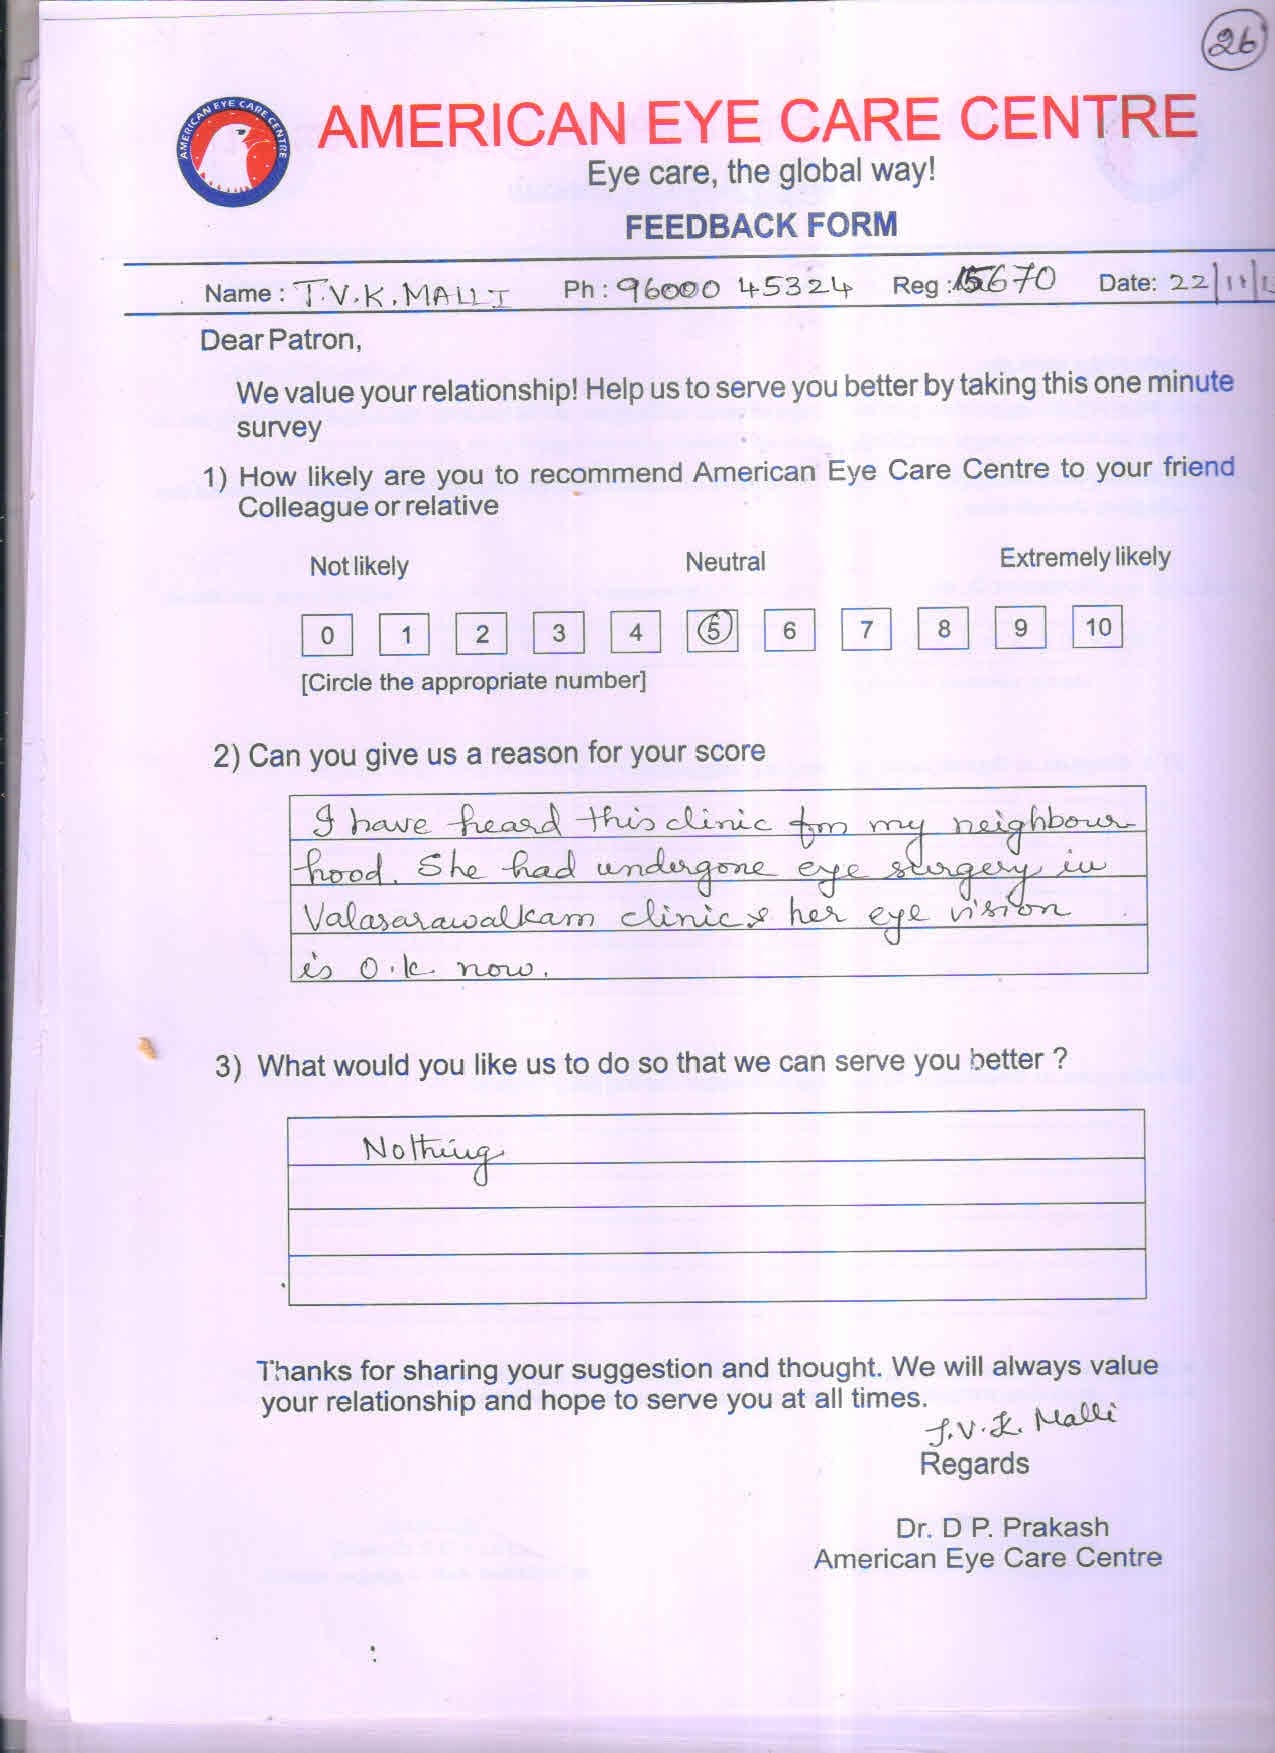 26
AMERICAN EYE CARE CENTRE
AMERICAN EYE CARE CENTRE
Eye care, the global way!
FEEDBACK FORM
Name : T.V.K. MALLI Ph : 96000 45324 Reg : 15670 Date: 22/11/
Dear Patron,
We value your relationship! Help us to serve you better by taking this one minute
survey
1) How likely are you to recommend American Eye Care Centre to your friend
Colleague or relative
Not likely Neutral Extremely likely
0 1 2 3 4 5 6 7 8 9 10
[Circle the appropriate number]
2) Can you give us a reason for your score
I have heard this clinic from my neighbour
hood. She had undergone eye surgery in
Valasarawalkam clinic & her eye vision
is O.K. now.
3) What would you like us to do so that we can serve you better ?
Nothing
Thanks for sharing your suggestion and thought. We will always value
your relationship and hope to serve you at all times.
T.V.K. Malli
Regards
Dr. D P. Prakash
American Eye Care Centre